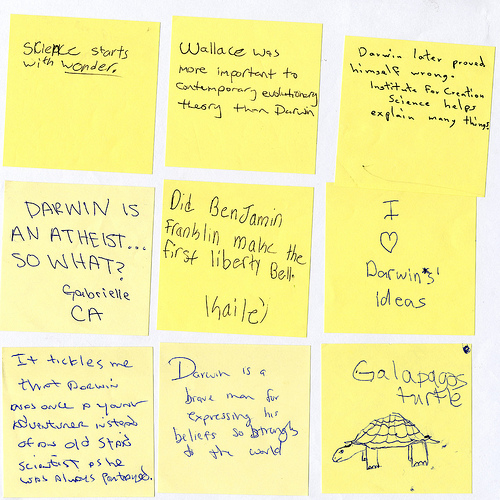 Science starts
with wonder.
Wallace was
more important to
contemporary evolutionary
theory than Darwin
Darwin later proved
himself wrong.
Institute For Creation
Science helps
explain many things
DARWIN IS
AN ATHEIST...
SO WHAT?
Gabrielle
CA
Did Benjamin
Franklin make the
first liberty Bell.
I
♡
Darwin's'
Ideas
It tickles me
that Darwin
was once a young
adventurer instead
of an old stars
scientist as he
was always portrayed.
Darwin is a
brave man for
expressing his
beliefs so strongly
to the world
Galapagos
turtle